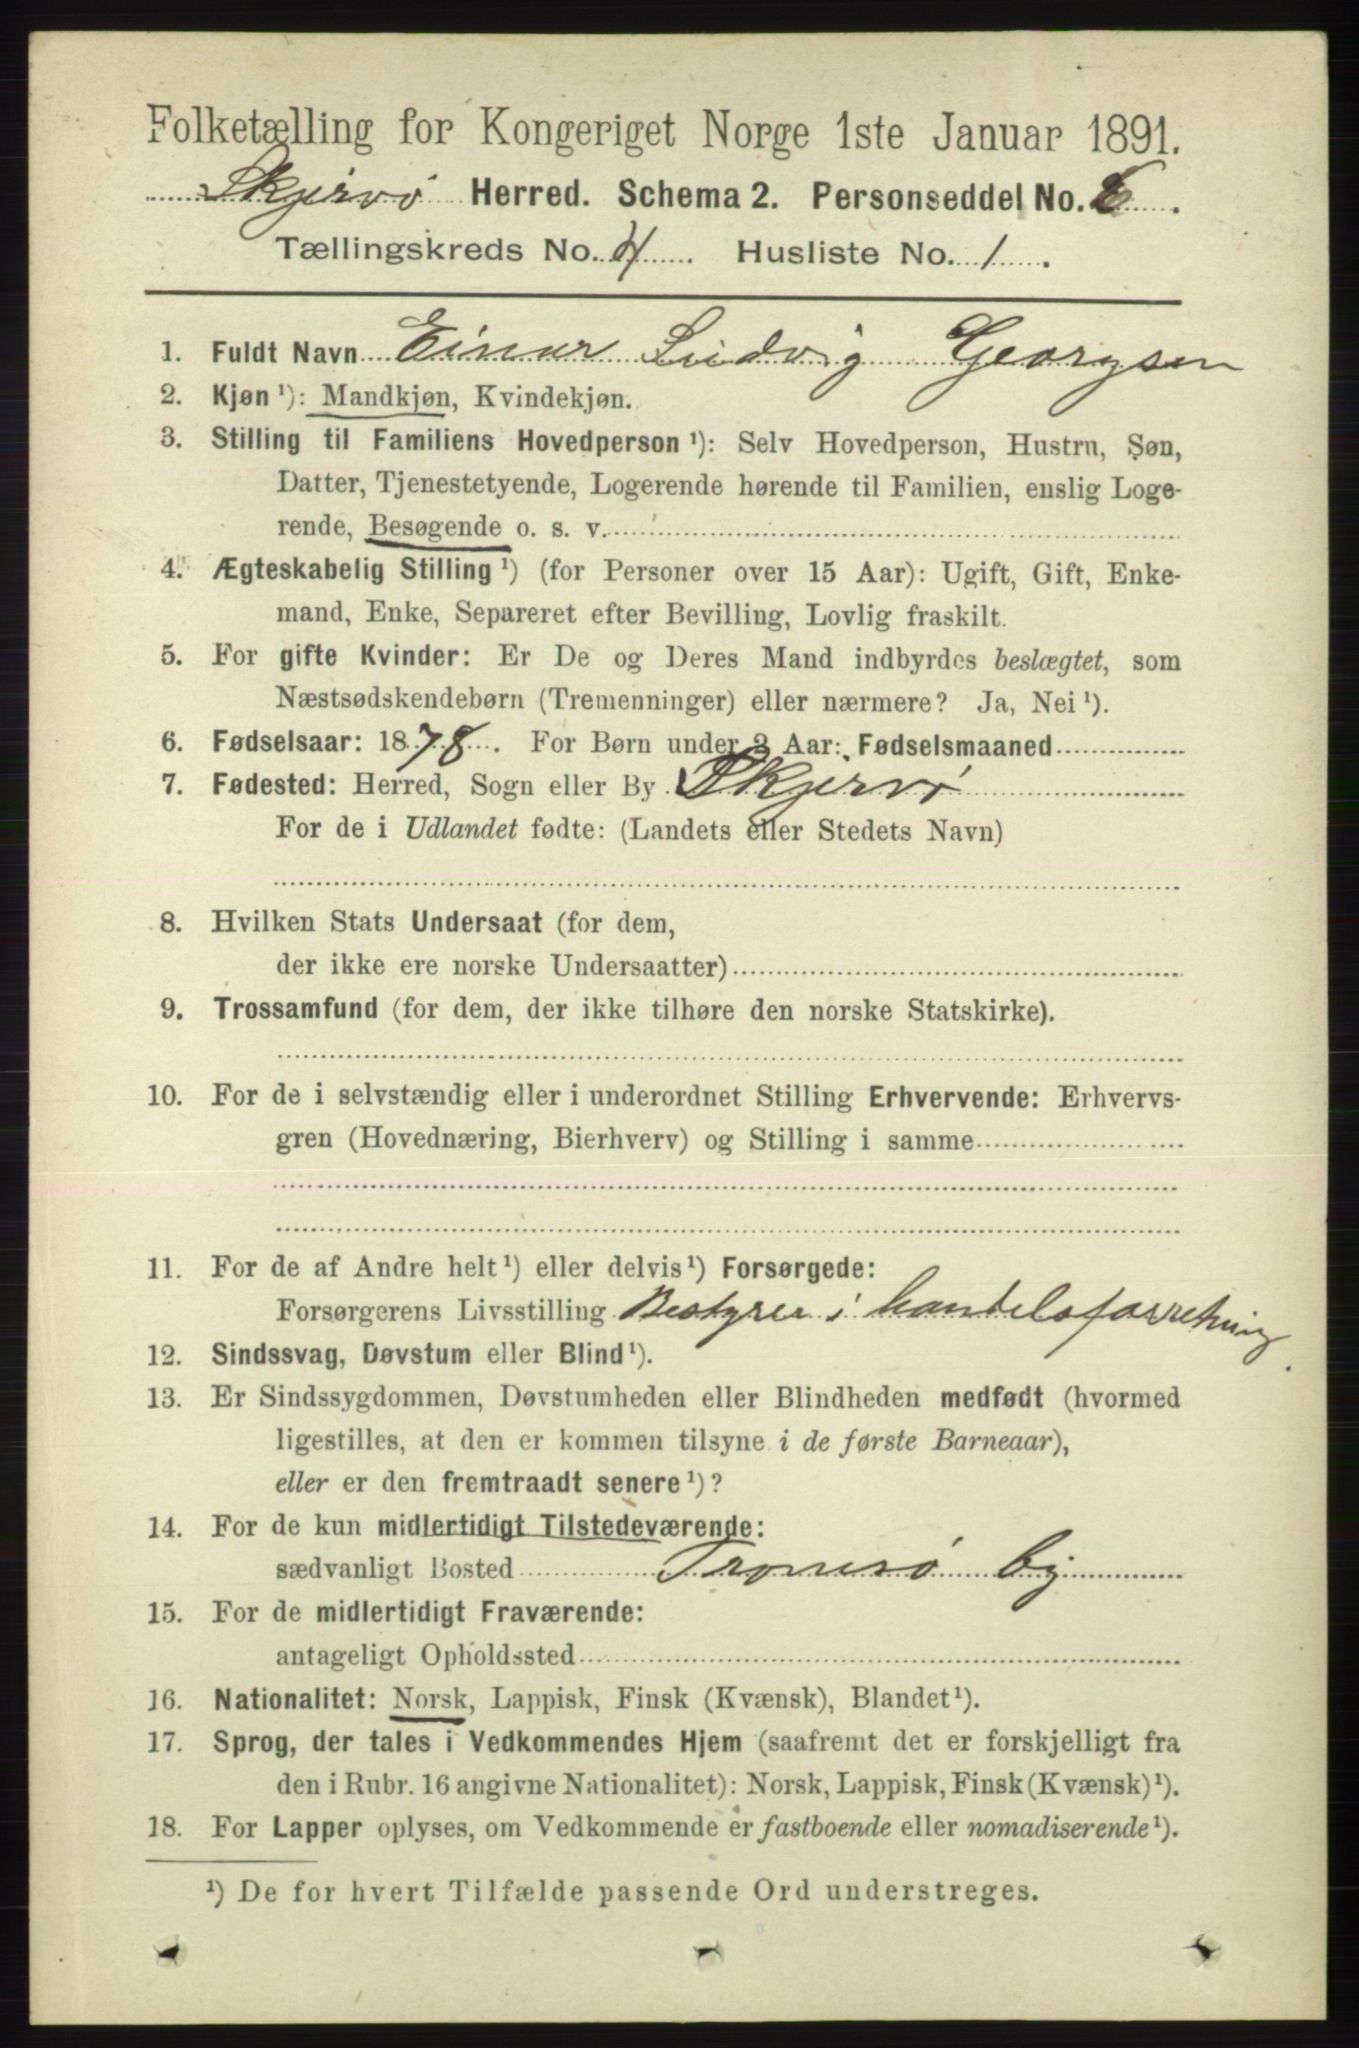 Folketælling for Kongeriget Norge 1ste Januar 1891.
Skjervø Herred. Schema 2. Personseddel No. 6.
Tællingskreds No. 4. Husliste No. 1.
1. Fuldt Navn Einar Ludvig Georgsen
2. Kjøn ¹): Mandkjøn, Kvindekjøn.
3. Stilling til Familiens Hovedperson ¹): Selv Hovedperson, Hustru, Søn,
Datter, Tjenestetyende, Logerende hørende til Familien, enslig Loge-
rende, Besøgende o. s. v.
4. Ægteskabelig Stilling ¹) (for Personer over 15 Aar): Ugift, Gift, Enke-
mand, Enke, Separeret efter Bevilling, Lovlig fraskilt.
5. For gifte Kvinder: Er De og Deres Mand indbyrdes beslægtet, som
Næstsødskendebørn (Tremenninger) eller nærmere? Ja, Nei ¹).
6. Fødselsaar: 1878. For Børn under 2 Aar: Fødselsmaaned
7. Fødested: Herred, Sogn eller By Skjervø
For de i Udlandet fødte: (Landets eller Stedets Navn)
8. Hvilken Stats Undersaat (for dem,
der ikke ere norske Undersaatter)
9. Trossamfund (for dem, der ikke tilhøre den norske Statskirke).
10. For de i selvstændig eller i underordnet Stilling Erhvervende: Erhvervs-
gren (Hovednæring, Bierhverv) og Stilling i samme
11. For de af Andre helt ¹) eller delvis ¹) Forsørgede:
Forsørgerens Livsstilling Bestyrer i handelsforretning
12. Sindssvag, Døvstum eller Blind ¹).
13. Er Sindssygdommen, Døvstumheden eller Blindheden medfødt (hvormed
ligestilles, at den er kommen tilsyne i de første Barneaar),
eller er den fremtraadt senere ¹)?
14. For de kun midlertidigt Tilstedeværende:
sædvanligt Bosted Tromsø by
15. For de midlertidigt Fraværende:
antageligt Opholdssted
16. Nationalitet: Norsk, Lappisk, Finsk (Kvænsk), Blandet ¹).
17. Sprog, der tales i Vedkommendes Hjem (saafremt det er forskjelligt fra
den i Rubr. 16 angivne Nationalitet): Norsk, Lappisk, Finsk (Kvænsk) ¹).
18. For Lapper oplyses, om Vedkommende er fastboende eller nomadiserende ¹).
¹) De for hvert Tilfælde passende Ord understreges.